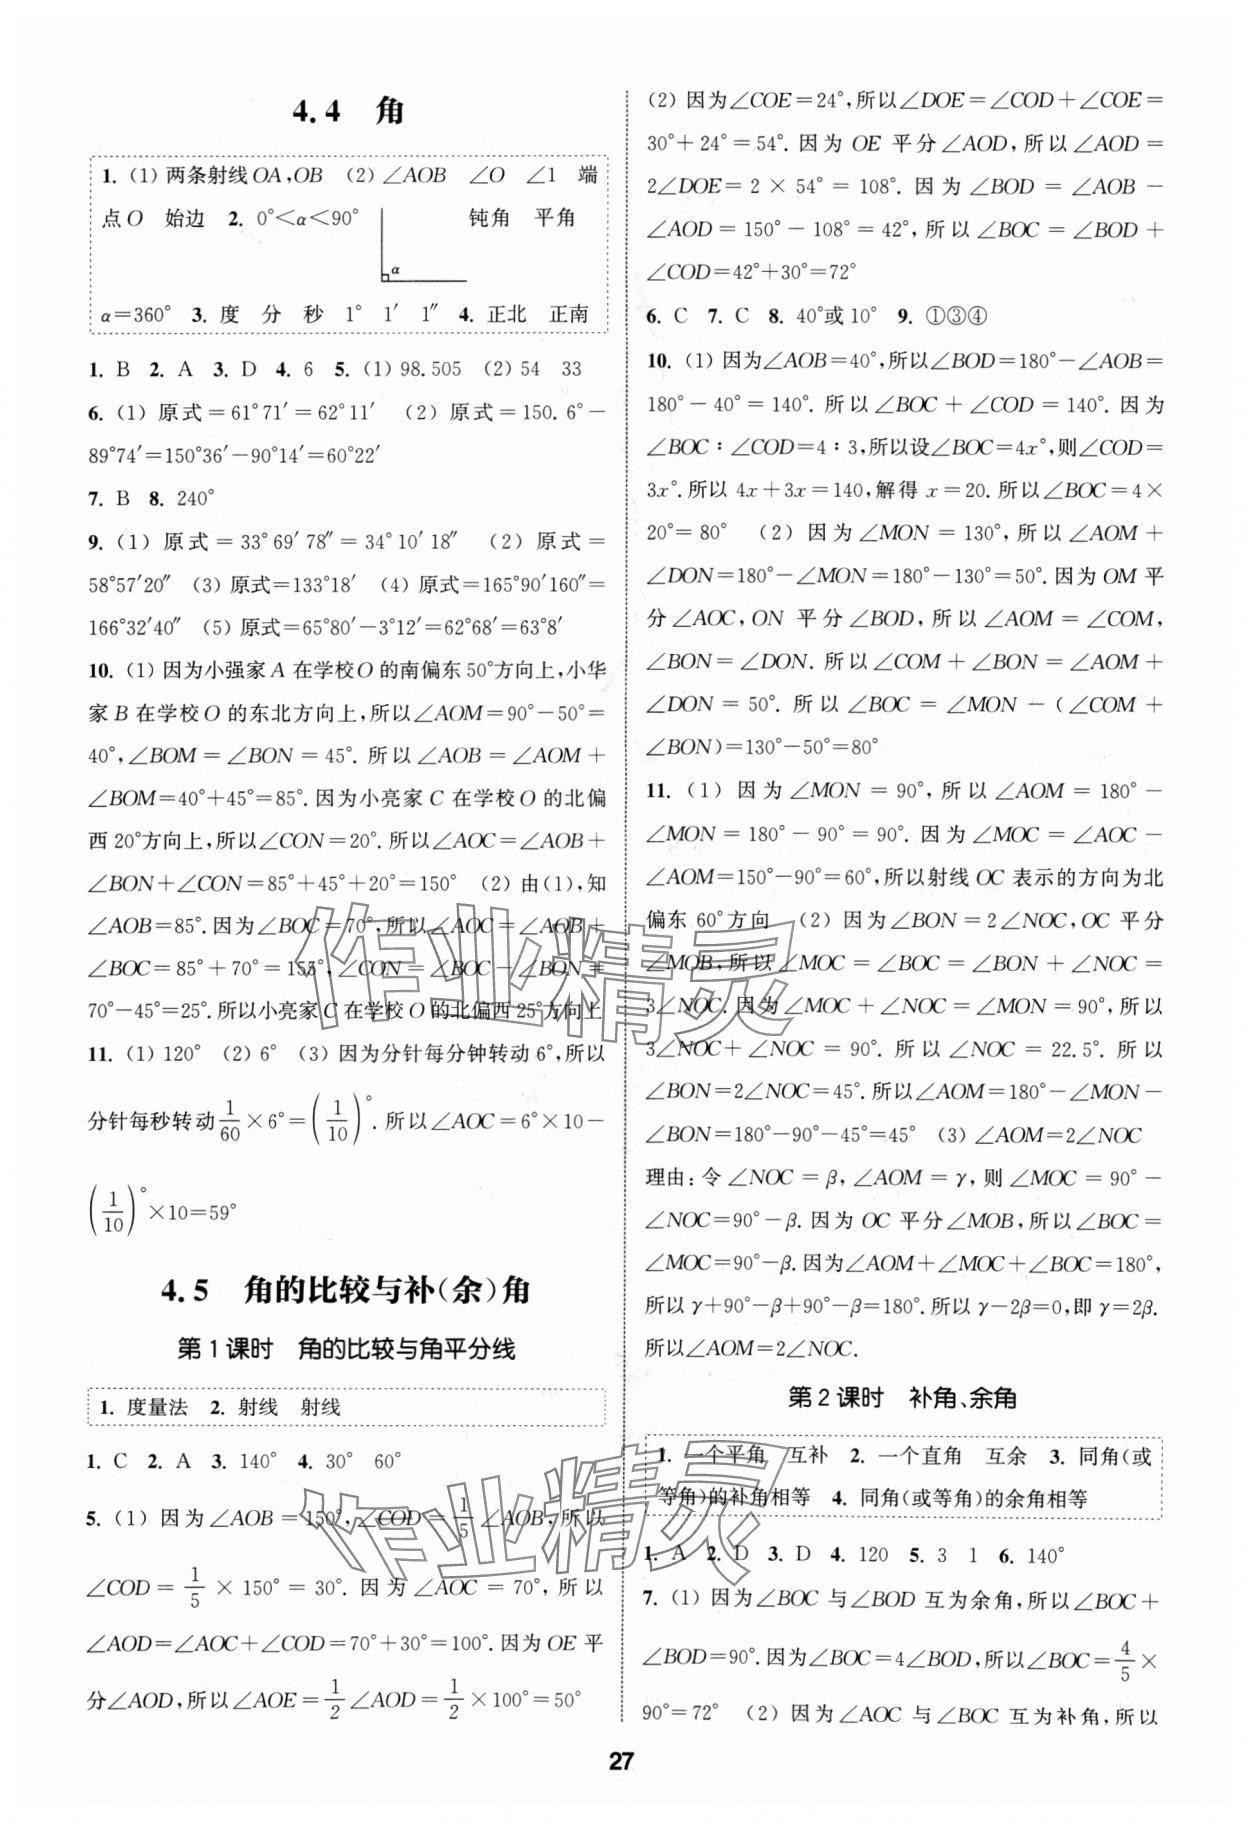 4.4 角
1. (1) 两条射线OA,OB (2) ∠AOB ∠O ∠1 端
点O 始边 2. 0°<α<90° 钝角 平角
α
α=360° 3. 度 分 秒 1° 1′ 1″ 4. 正北 正南
1. B 2. A 3. D 4. 6 5. (1) 98.505 (2) 54 33
6. (1) 原式=61°71′=62°11′ (2) 原式=150.6°-
89°74′=150°36′-90°14′=60°22′
7. B 8. 240°
9. (1) 原式=33°69′78″=34°10′18″ (2) 原式=
58°57′20″ (3) 原式=133°18′ (4) 原式=165°90′160″=
166°32′40″ (5) 原式=65°80′-3°12′=62°68′=63°8′
10. (1) 因为小强家A在学校O的南偏东50°方向上,小华
家B在学校O的东北方向上,所以∠AOM=90°-50°=
40°,∠BOM=∠BON=45°.所以∠AOB=∠AOM+
∠BOM=40°+45°=85°.因为小亮家C在学校O的北偏
西20°方向上,所以∠CON=20°.所以∠AOC=∠AOB+
∠BON+∠CON=85°+45°+20°=150° (2) 由(1),知
∠AOB=85°.因为∠BOC=70°,所以∠AOC=∠AOB+
∠BOC=85°+70°=155°,∠CON=∠BOC-∠BON=
70°-45°=25°.所以小亮家C在学校O的北偏西25°方向上
11. (1) 120° (2) 6° (3) 因为分针每分钟转动6°,所以
分针每秒转动1/60×6°=(1/10)°.所以∠AOC=6°×10-
(1/10)°×10=59°
4.5 角的比较与补(余)角
第1课时 角的比较与角平分线
1. 度量法 2. 射线 射线
1. C 2. A 3. 140° 4. 30° 60°
5. (1) 因为∠AOB=150°,∠COD=1/5∠AOB,所以
∠COD=1/5×150°=30°.因为∠AOC=70°,所以
∠AOD=∠AOC+∠COD=70°+30°=100°.因为OE平
分∠AOD,所以∠AOE=1/2∠AOD=1/2×100°=50°
(2) 因为∠COE=24°,所以∠DOE=∠COD+∠COE=
30°+24°=54°.因为OE平分∠AOD,所以∠AOD=
2∠DOE=2×54°=108°.因为∠BOD=∠AOB-
∠AOD=150°-108°=42°,所以∠BOC=∠BOD+
∠COD=42°+30°=72°
6. C 7. C 8. 40°或10° 9. ①③④
10. (1) 因为∠AOB=40°,所以∠BOD=180°-∠AOB=
180°-40°=140°.所以∠BOC+∠COD=140°.因为
∠BOC∶∠COD=4∶3,所以设∠BOC=4x°,则∠COD=
3x°.所以4x+3x=140,解得x=20.所以∠BOC=4×
20°=80° (2) 因为∠MON=130°,所以∠AOM+
∠DON=180°-∠MON=180°-130°=50°.因为OM平
分∠AOC,ON平分∠BOD,所以∠AOM=∠COM,
∠BON=∠DON.所以∠COM+∠BON=∠AOM+
∠DON=50°.所以∠BOC=∠MON-(∠COM+
∠BON)=130°-50°=80°
11. (1) 因为∠MON=90°,所以∠AOM=180°-
∠MON=180°-90°=90°.因为∠MOC=∠AOC-
∠AOM=150°-90°=60°,所以射线OC表示的方向为北
偏东60°方向 (2) 因为∠BON=2∠NOC,OC平分
∠MOB,所以∠MOC=∠BOC=∠BON+∠NOC=
3∠NOC.因为∠MOC+∠NOC=∠MON=90°,所以
3∠NOC+∠NOC=90°.所以∠NOC=22.5°.所以
∠BON=2∠NOC=45°.所以∠AOM=180°-∠MON-
∠BON=180°-90°-45°=45° (3) ∠AOM=2∠NOC
理由:令∠NOC=β,∠AOM=γ,则∠MOC=90°-
∠NOC=90°-β.因为OC平分∠MOB,所以∠BOC=
∠MOC=90°-β.因为∠AOM+∠MOC+∠BOC=180°,
所以γ+90°-β+90°-β=180°.所以γ-2β=0,即γ=2β.
所以∠AOM=2∠NOC.
第2课时 补角、余角
1. 一个平角 互补 2. 一个直角 互余 3. 同角(或
等角)的补角相等 4. 同角(或等角)的余角相等
1. A 2. D 3. D 4. 120 5. 3 1 6. 140°
7. (1) 因为∠BOC与∠BOD互为余角,所以∠BOC+
∠BOD=90°.因为∠BOC=4∠BOD,所以∠BOC=4/5×
90°=72° (2) 因为∠AOC与∠BOC互为补角,所以
27
作业精灵
作业精灵